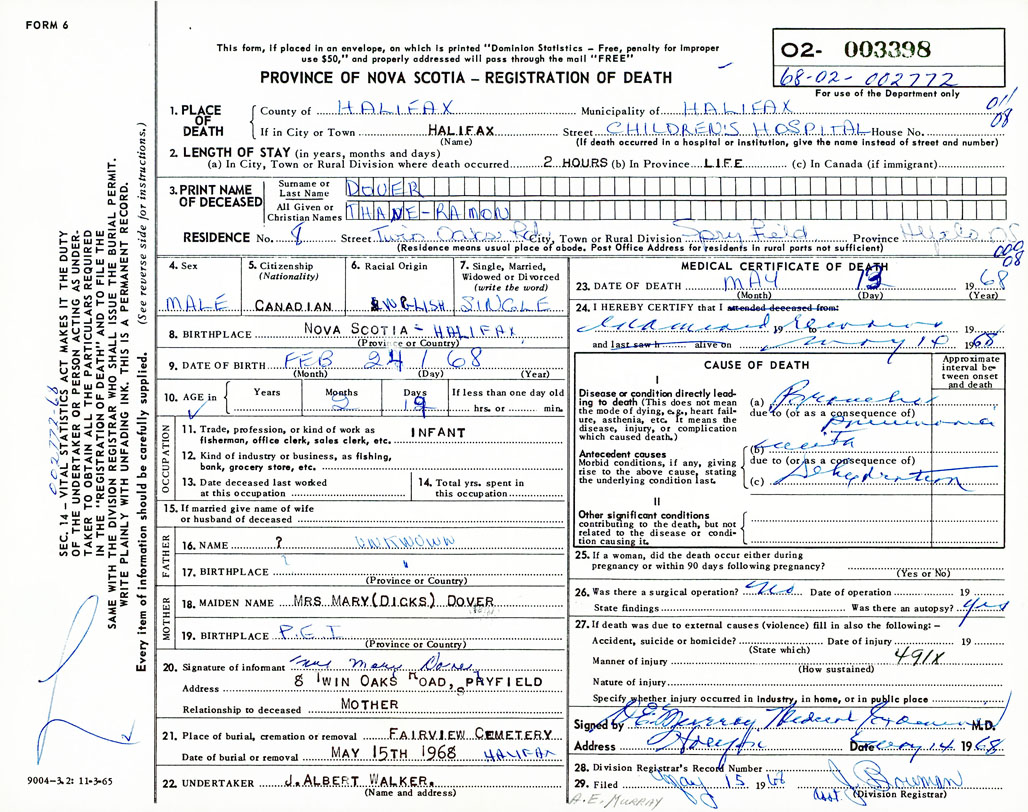 FORM 6
This form, if placed in an envelope, on which is printed "Dominion Statistics – Free, penalty for improper
use $50," and properly addressed will pass through the mail "FREE"
PROVINCE OF NOVA SCOTIA – REGISTRATION OF DEATH
O2- 003398
68-02-002772
For use of the Department only
011
08
1. PLACE OF DEATH
County of HALIFAX Municipality of HALIFAX
If in City or Town HALIFAX Street CHILDREN'S HOSPITAL House No.
(Name) (If death occurred in a hospital or institution, give the name instead of street and number)
2. LENGTH OF STAY (in years, months and days)
(a) In City, Town or Rural Division where death occurred 2 HOURS (b) In Province LIFE (c) In Canada (if immigrant)
3. PRINT NAME OF DECEASED
Surname or Last Name DOVER
All Given or Christian Names THANE-RAMON
RESIDENCE No. 8 Street Twin Oaks Rd City, Town or Rural Division Spryfield Province
(Residence means usual place of abode. Post Office Address for residents in rural parts not sufficient)
08
4. Sex MALE
5. Citizenship (Nationality) CANADIAN
6. Racial Origin ENGLISH
7. Single, Married, Widowed or Divorced (write the word) SINGLE
8. BIRTHPLACE NOVA SCOTIA - HALIFAX
(Province or Country)
9. DATE OF BIRTH FEB 24 / 68
(Month) (Day) (Year)
10. AGE in Years Months 2 Days 19 If less than one day old
hrs. or min.
OCCUPATION
11. Trade, profession, or kind of work as
fisherman, office clerk, sales clerk, etc. INFANT
12. Kind of industry or business, as fishing,
bank, grocery store, etc.
13. Date deceased last worked
at this occupation
14. Total yrs. spent in
this occupation
15. If married give name of wife
or husband of deceased
FATHER
16. NAME ? UNKNOWN
17. BIRTHPLACE
(Province or Country)
MOTHER
18. MAIDEN NAME MRS MARY (DICKS) DOVER
19. BIRTHPLACE P.E.I
(Province or Country)
20. Signature of informant Mrs Mary Dover
Address 8 TWIN OAKS ROAD, SPRYFIELD
Relationship to deceased MOTHER
21. Place of burial, cremation or removal FAIRVIEW CEMETERY
Date of burial or removal MAY 15TH 1968 HALIFAX
22. UNDERTAKER J. ALBERT WALKER.
(Name and address)
MEDICAL CERTIFICATE OF DEATH
23. DATE OF DEATH MAY 13 1968
(Month) (Day) (Year)
24. I HEREBY CERTIFY that I attended deceased from:
Examined 19 to Remains 19
and last saw h alive on May 14 1968
CAUSE OF DEATH
Approximate interval between onset and death
I
Disease or condition directly leading to death (This does not mean the mode of dying, e.g., heart failure, asthenia, etc. It means the disease, injury, or complication which caused death.)
(a) Broncho
due to (or as a consequence of)
Pneumonia
Antecedent causes
Morbid conditions, if any, giving rise to the above cause, stating the underlying condition last.
(b)
due to (or as a consequence of)
(c) Dehydration
II
Other significant conditions
contributing to the death, but not related to the disease or condition causing it.
25. If a woman, did the death occur either during
pregnancy or within 90 days following pregnancy?
(Yes or No)
26. Was there a surgical operation? No Date of operation 19
State findings Was there an autopsy? Yes
27. If death was due to external causes (violence) fill in also the following: –
Accident, suicide or homicide? Date of injury 19
(State which)
Manner of injury 491X
(How sustained)
Nature of injury
Specify whether injury occurred in industry, in home, or in public place
Signed by Murray Medical Examiner M.D.
Address Halifax Date May 14 1968
28. Division Registrar's Record Number
29. Filed May 15 1968 J. Bowman
Asst. (Division Registrar)
A.E. MURRAY
002772-68
SEC. 14 – VITAL STATISTICS ACT MAKES IT THE DUTY
OF THE UNDERTAKER OR PERSON ACTING AS UNDER-
TAKER TO OBTAIN ALL THE PARTICULARS REQUIRED
IN THE "REGISTRATION OF DEATH" AND TO FILE THE
SAME WITH THE DIVISION REGISTRAR WHO SHALL ISSUE THE BURIAL PERMIT.
WRITE PLAINLY WITH UNFADING INK. THIS IS A PERMANENT RECORD.
Every item of information should be carefully supplied. (See reverse side for instructions.)
9004-3.2: 11-3-65